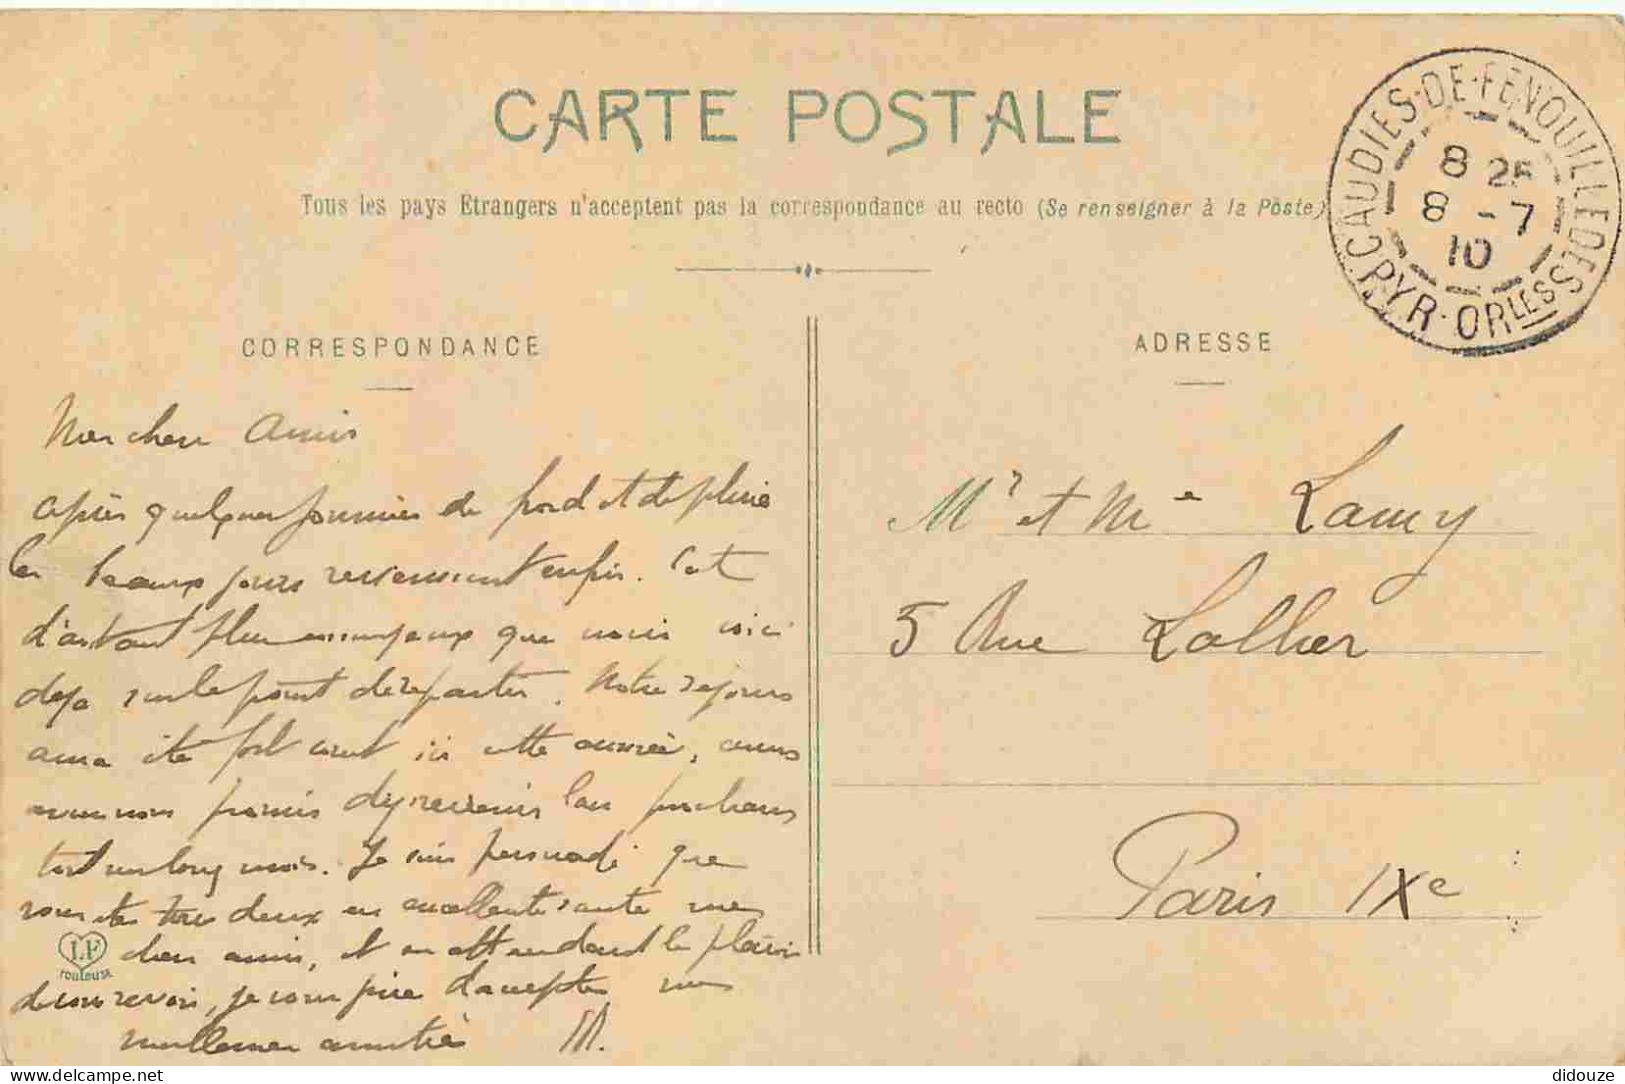 CARTE POSTALE
Tous les pays Etrangers n'acceptent pas la correspondance au recto (Se renseigner à la Poste)
CAUDIES-DE-FENOUILLEDES
PYR.-ORLES
8 25
8 - 7
10
CORRESPONDANCE
Mes chers Amis
après quelques journées de froid et de pluie
les beaux jours reviennent enfin. C'est
d'autant plus ennuyeux que nous voici
déjà sur le point de repartir. Notre séjours
aura été fort court ici cette année, mais
nous nous promis d'y revenir l'an prochain
tout un long mois. Je suis persuadé que
vous êtes tous deux en excellente santé mes
chers amis, et en attendant le plaisir
de vous revoir, je vous prie d'accepter mes
meilleures amitiés
LF
TOULOUSE
ADRESSE
Mr et Mme Lamy
5 Rue Lallier
Paris IXe
delcampe.net
didouze